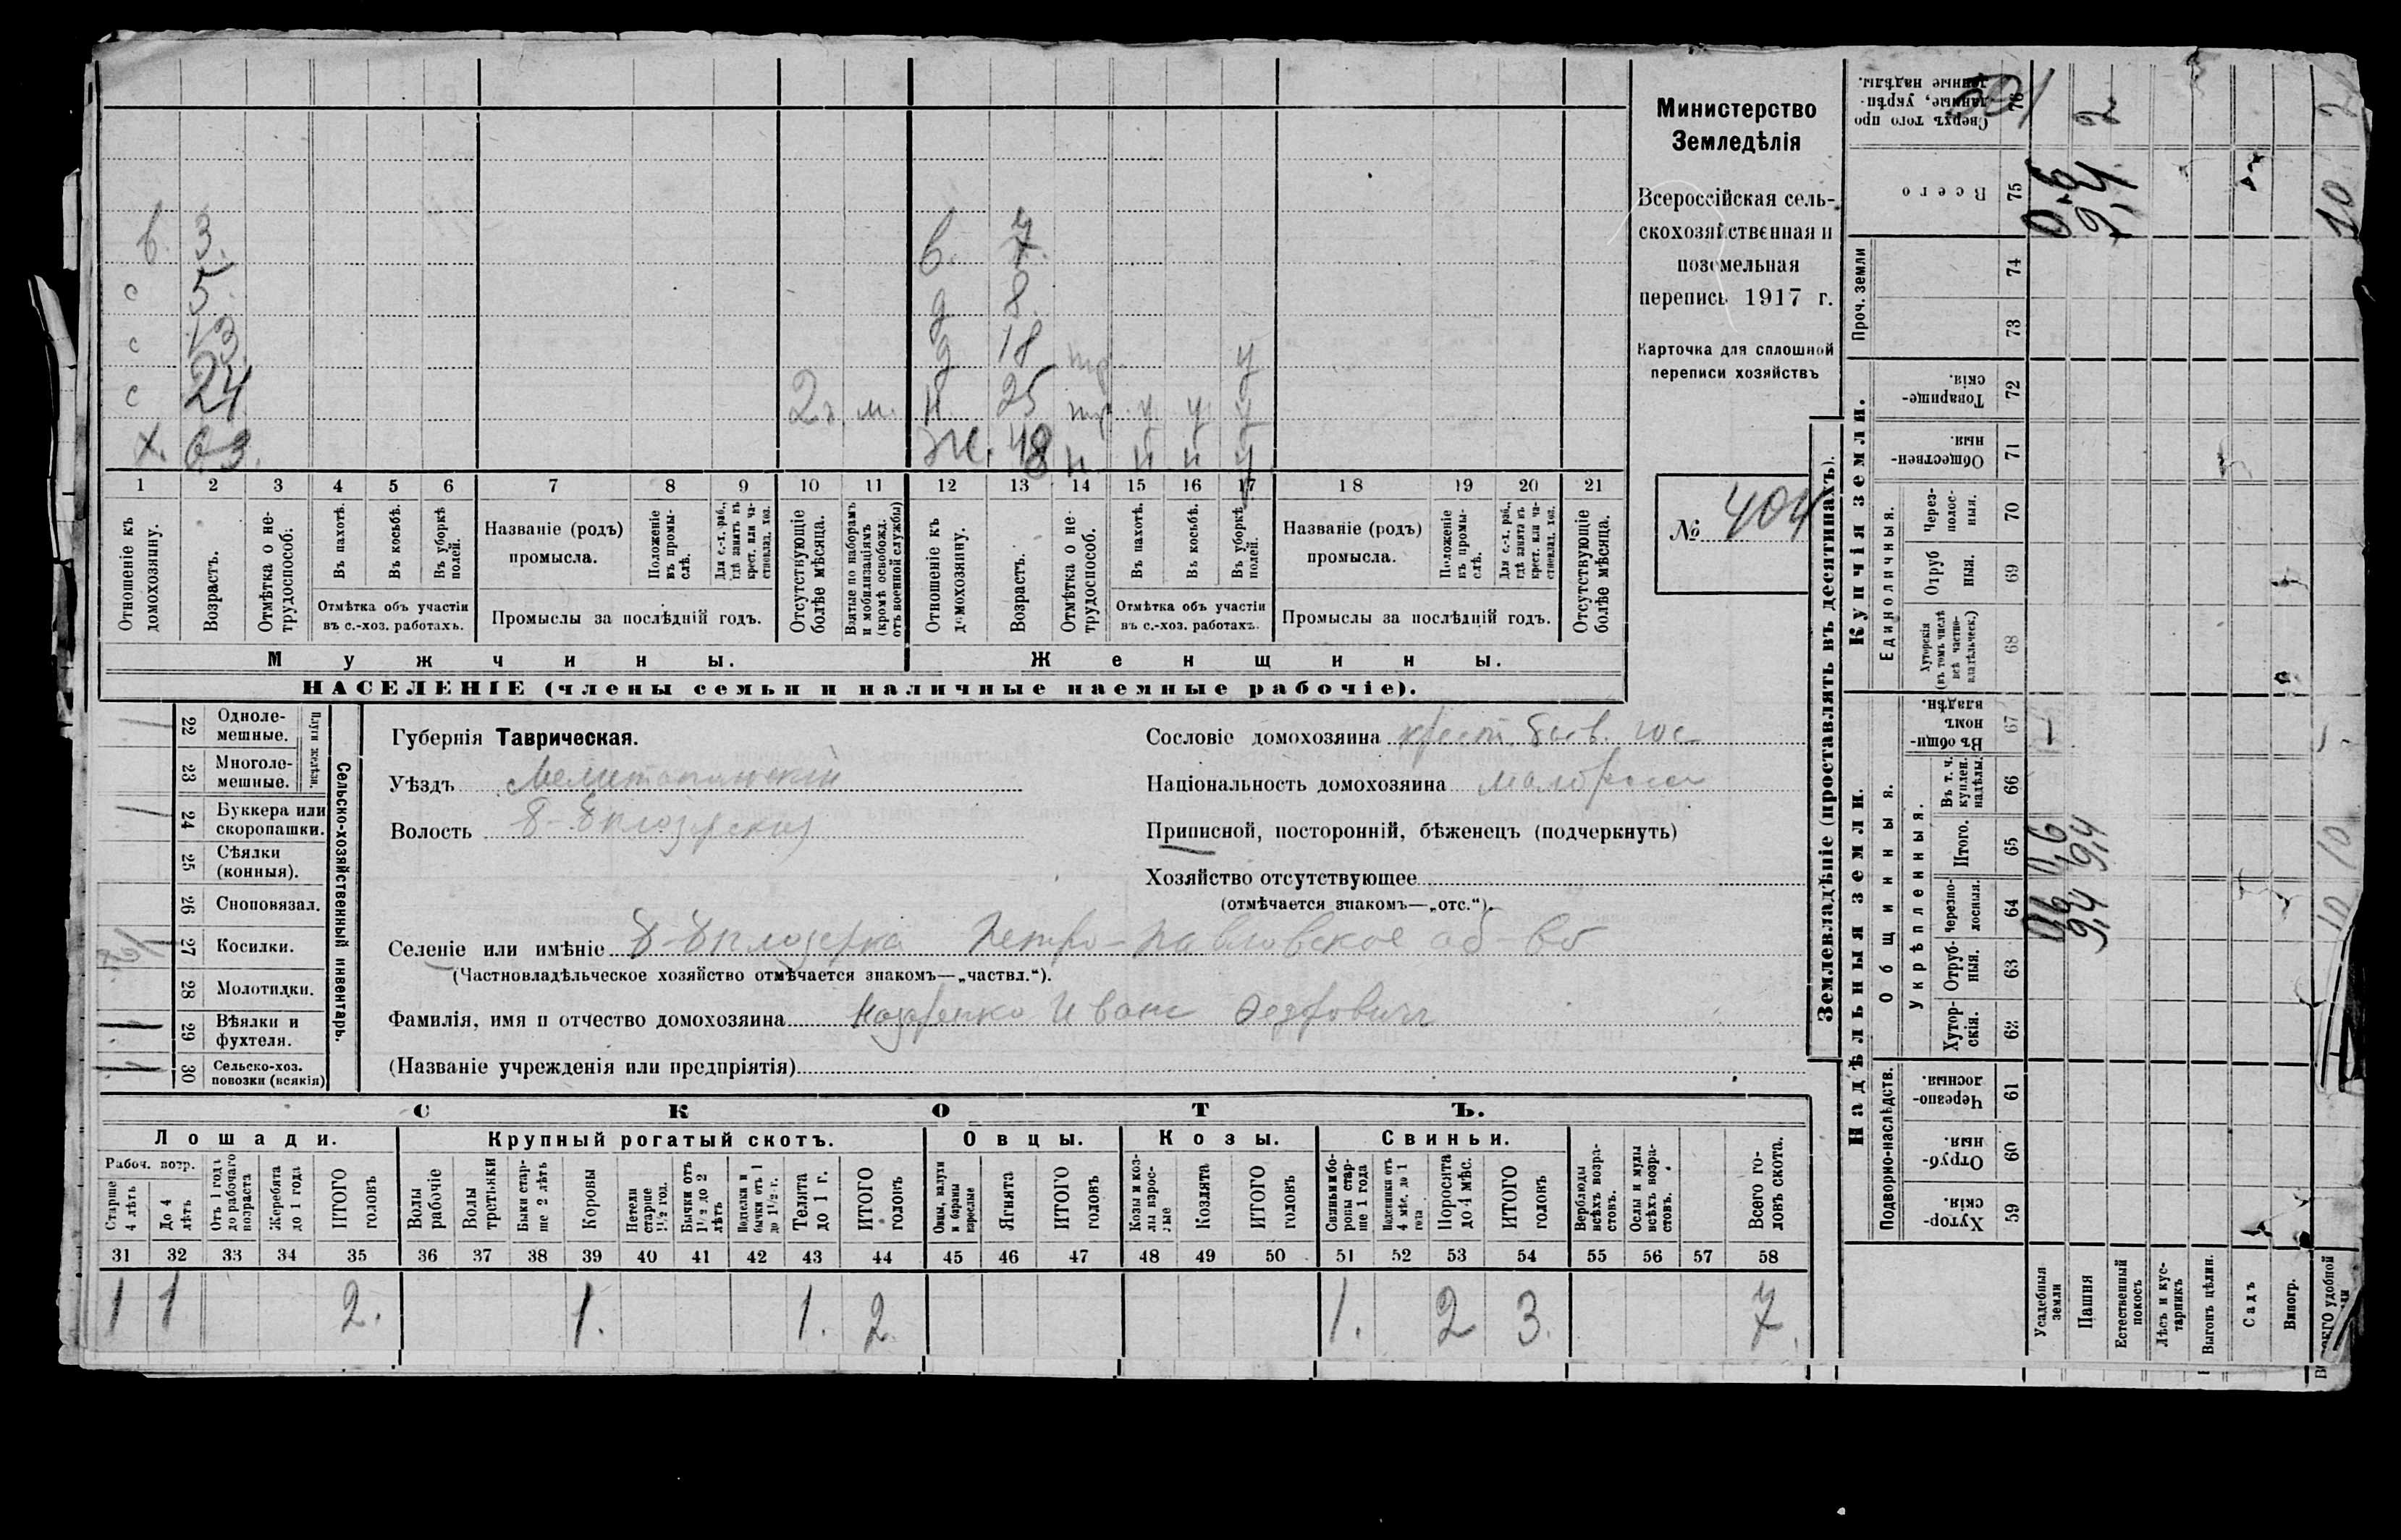 Министерство
Земледѣлія
Всероссійская сель-
скохозяйственная и
поземельная
перепись 1917 г.
Карточка для сплошной
переписи хозяйствъ
№ 404
в. 3. в. 7.
с 5. д 8.
с 13. д 18 у
с 24 2 г. м. н. 25 у у у
х. 63. ж. 48 н н н у
1 2 3 4 5 6 7 8 9 10 11 12 13 14 15 16 17 18 19 20 21
Отношеніе къ домохозяину.
Возрастъ.
Отмѣтка о не-трудоспособ.
Въ пахотѣ.
Въ косьбѣ.
Въ уборкѣ полей.
Отмѣтка объ участіи
въ с.-хоз. работахъ.
Названіе (родъ)
промысла.
Положеніе въ промы-слѣ.
Для с.-х. раб., гдѣ занятъ въ крест. или ча-стновлад. хоз.
Промыслы за послѣдній годъ.
Отсутствующіе болѣе мѣсяца.
Взятые по наборамъ и мобилизаціямъ (кромѣ освобожд. отъ военной службы)
Отношеніе къ домохозяину.
Возрастъ.
Отмѣтка о не-трудоспособ.
Въ пахотѣ.
Въ косьбѣ.
Въ уборкѣ полей.
Отмѣтка объ участіи
въ с.-хоз. работахъ.
Названіе (родъ)
промысла.
Положеніе въ промы-слѣ.
Для с.-х. раб., гдѣ занята въ крест. или ча-стновлад. хоз.
Промыслы за послѣдній годъ.
Отсутствующіе болѣе мѣсяца.
Мужчины. Женщины.
НАСЕЛЕНІЕ (члены семьи и наличные наемные рабочіе).
Сельско-хозяйственный инвентарь.
Плуги желѣзн.
22 Одноле-мешные.
23 Многоле-мешные.
24 Буккера или скоропашки.
25 Сѣялки (конныя).
26 Сноповязал.
27 Косилки.
28 Молотилки.
29 Вѣялки и фухтеля.
30 Сельско-хоз. повозки (всякія)
Губернія Таврическая.
Уѣздъ Мелитопольскій
Волость Б-Бѣлозерская
Сословіе домохозяина крест. быв. гос
Національность домохозяина малоросс
Приписной, посторонній, бѣженецъ (подчеркнуть)
Хозяйство отсутствующее
(отмѣчается знакомъ—„отс.“).
Селеніе или имѣніе Б-Бѣлозерка Петро-Павловское об-во
(Частновладѣльческое хозяйство отмѣчается знакомъ—„частвл.“).
Фамилія, имя и отчество домохозяина Назаренко Иванъ Федоровичъ
(Названіе учрежденія или предпріятія)
СКОТЪ.
Лошади. Крупный рогатый скотъ. Овцы. Козы. Свиньи.
Рабоч. возр.
Старше 4 лѣтъ
До 4 лѣтъ
Отъ 1 года до рабочаго возраста
Жеребята до 1 года
ИТОГО головъ
Волы рабочіе
Волы третьяки
Быки стар-ше 2 лѣтъ
Коровы
Нетели старше 1½ год.
Бычки отъ 1½ до 2 лѣтъ
Подтелки и бычки отъ 1 до 1½ г.
Телята до 1 г.
ИТОГО головъ
Овцы, валухи и бараны взрослые
Ягнята
ИТОГО головъ
Козы и коз-лы взрос-лые
Козлята
ИТОГО головъ
Свиньи и бо-ровы стар-ше 1 года
Подсвинки отъ 4 мѣс. до 1 года
Поросята до 4 мѣс.
ИТОГО головъ
Верблюды всѣхъ возра-стовъ.
Ослы и мулы всѣхъ возра-стовъ.
Всего го-ловъ скота.
31 32 33 34 35 36 37 38 39 40 41 42 43 44 45 46 47 48 49 50 51 52 53 54 55 56 57 58
1 1 2. 1. 1. 2 1. 2 3. 7.
Землевладѣніе (проставлять въ десятинахъ).
Надѣльныя земли. Купчія земли. Проч. земли
Подворно-наслѣдств.
Общинныя.
Укрѣпленныя.
Единоличныя.
Хутор-скія. 59
Отруб-ныя. 60
Черезпо-лосныя. 61
Хутор-скія. 62
Отруб-ныя. 63
Черезпо-лосныя. 64
Итого. 65
Въ т. ч. куплен. надѣлы. 66
Въ общин-номъ владѣн. 67
Хуторскія (въ томъ числѣ всѣ частно-владѣльческ.) 68
Отруб ныя. 69
Через-полос-ныя. 70
Обществен-ныя. 71
Товарище-скія. 72
73
74
Всего 75
Сверхъ того про данные, укрѣп-ленные надѣлы. 76
Усадебныя земли 0,6 0,6 0,6
Пашня 9,4 9,4 9,4 2
Естественный покосъ
Лѣсъ и кус-тарникъ
Выгонъ цѣлин.
Садъ
Виногр.
удобной 10 10 10 2